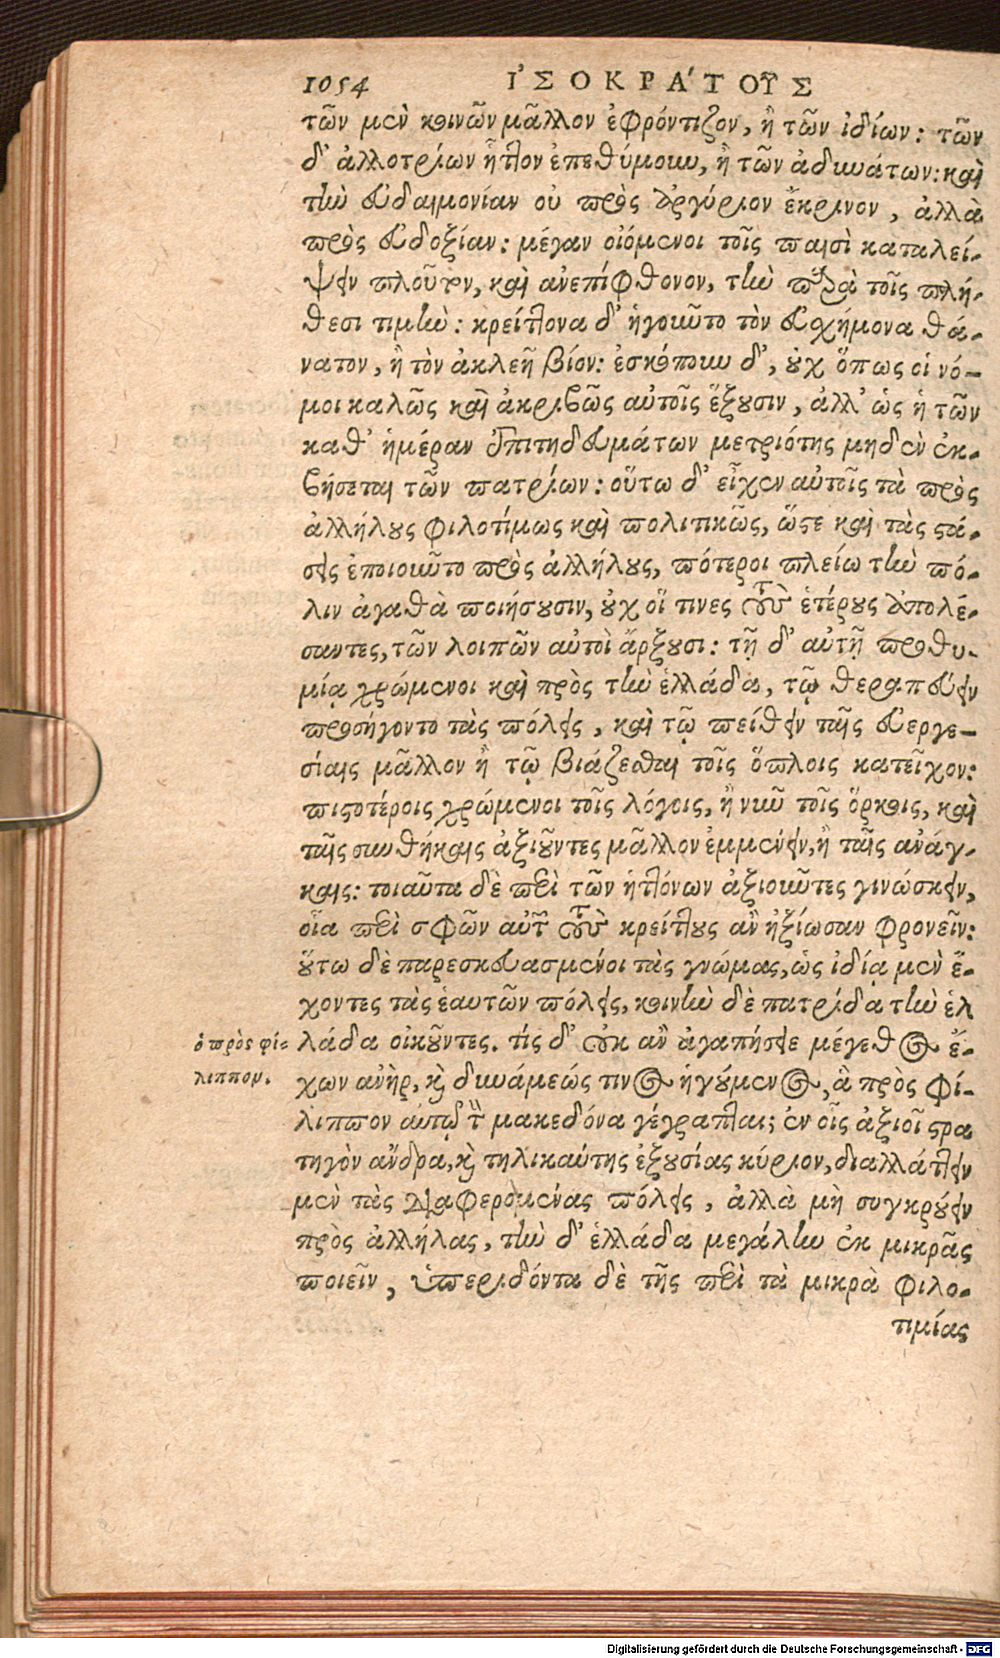 1054 ἸΣΟΚΡΆΤΟΥΣ
τῶν μὲν κοινῶν μᾶλλον ἐφρόντιζον, ἢ τῶν ἰδίων: τῶν
δ' ἀλλοτρίων ἧττον ἐπεθύμουν, ἢ τῶν ἀδυνάτων: καὶ
τὴν εὐδαιμονίαν οὐ πρὸς ἀργύριον ἔκρινον, ἀλλὰ
πρὸς εὐδοξίαν: μέγαν οἰόμενοι τοῖς παισὶ καταλεί-
ψειν πλοῦτον, καὶ ἀνεπίφθονον, τὴν παρὰ τοῖς πλή-
θεσι τιμὴν: κρείττονα δ' ἡγοῦντο τὸν εὐσχήμονα θά-
νατον, ἢ τὸν ἀκλεῆ βίον: ἐσκόπουν δ', οὐχ ὅπως οἱ νό-
μοι καλῶς καὶ ἀκριβῶς αὐτοῖς ἕξουσιν, ἀλλ' ὡς ἡ τῶν
καθ' ἡμέραν ἐπιτηδευμάτων μετριότης μηδὲν ἐκ-
βήσεται τῶν πατρίων: οὕτω δ' εἶχεν αὐτοῖς τὰ πρὸς
ἀλλήλους φιλοτίμως καὶ πολιτικῶς, ὥστε καὶ τὰς στά-
σεις ἐποιοῦντο πρὸς ἀλλήλους, πότεροι πλείω τὴν πό-
λιν ἀγαθὰ ποιήσουσιν, οὐχ οἵ τινες τοὺς ἑτέρους ἀπολέ-
σαντες, τῶν λοιπῶν αὐτοὶ ἄρξουσι: τῇ δ' αὐτῇ προθυ-
μίᾳ χρώμενοι καὶ πρὸς τὴν ἑλλάδα, τῷ θεραπεύειν
προσήγοντο τὰς πόλεις, καὶ τῷ πείθειν ταῖς εὐεργε-
σίαις μᾶλλον ἢ τῷ βιάζεσθαι τοῖς ὅπλοις κατεῖχον:
πιστοτέροις χρώμενοι τοῖς λόγοις, ἢ νῦν τοῖς ὅρκοις, καὶ
ταῖς συνθήκαις ἀξιοῦντες μᾶλλον ἐμμένειν, ἢ ταῖς ἀνάγ-
καις: τοιαῦτα δὲ περὶ τῶν ἡττόνων ἀξιοῦντες γινώσκειν,
οἷα περὶ σφῶν αὐτῶν τοὺς κρείττους ἂν ἠξίωσαν φρονεῖν:
οὕτω δὲ παρεσκευασμένοι τὰς γνώμας, ὡς ἰδίᾳ μὲν ἔ-
χοντες τὰς ἑαυτῶν πόλεις, κοινὴν δὲ πατρίδα τὴν ἑλ
λάδα οἰκοῦντες. τίς δ' οὐκ ἂν ἀγαπήσειε μέγεθος ἔ-
χων ἀνὴρ, καὶ δυνάμεώς τινος ἡγούμενος, ἃ πρὸς Φί-
λιππον αὐτῷ τὸν μακεδόνα γέγραπται; ἐν οἷς ἀξιοῖ στρα
τηγὸν ἄνδρα, καὶ τηλικαύτης ἐξουσίας κύριον, διαλλάττειν
μὲν τὰς διαφερομένας πόλεις, ἀλλὰ μὴ συγκρούειν
πρὸς ἀλλήλας, τὴν δ' ἑλλάδα μεγάλην ἐκ μικρᾶς
ποιεῖν, ὑπεριδόντα δὲ τῆς περὶ τὰ μικρὰ φιλο-
τιμίας
ὁ πρὸς φί-
λιππον.
Digitalisierung gefördert durch die Deutsche Forschungsgemeinschaft - DFG